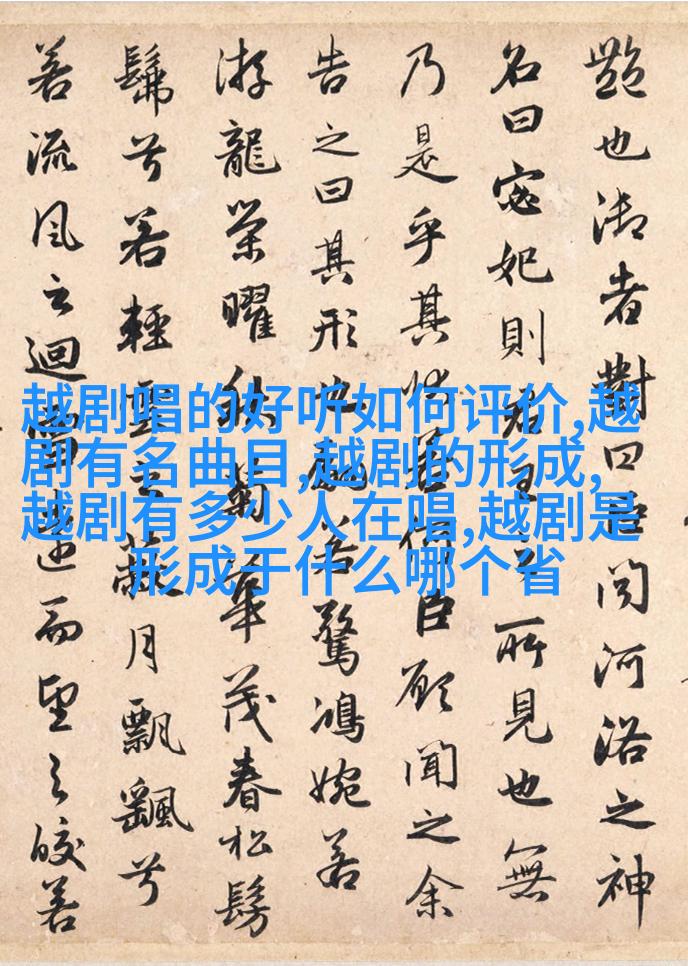 越剧唱的好听如何评价,越
剧有名曲目,越剧的形成,
越剧有多少人在唱,越剧是
形成于什么哪个省
艷也御者對曰臣聞河洛之神
名曰宓妃則君王之所見也無
乃是乎其狀若何臣願聞之余
告之曰其形也翩若驚鴻婉若
游龍榮曜秋菊華茂春松髣
髴兮若輕雲之蔽月飄颻兮
若流風之迴雪遠而望之皎若